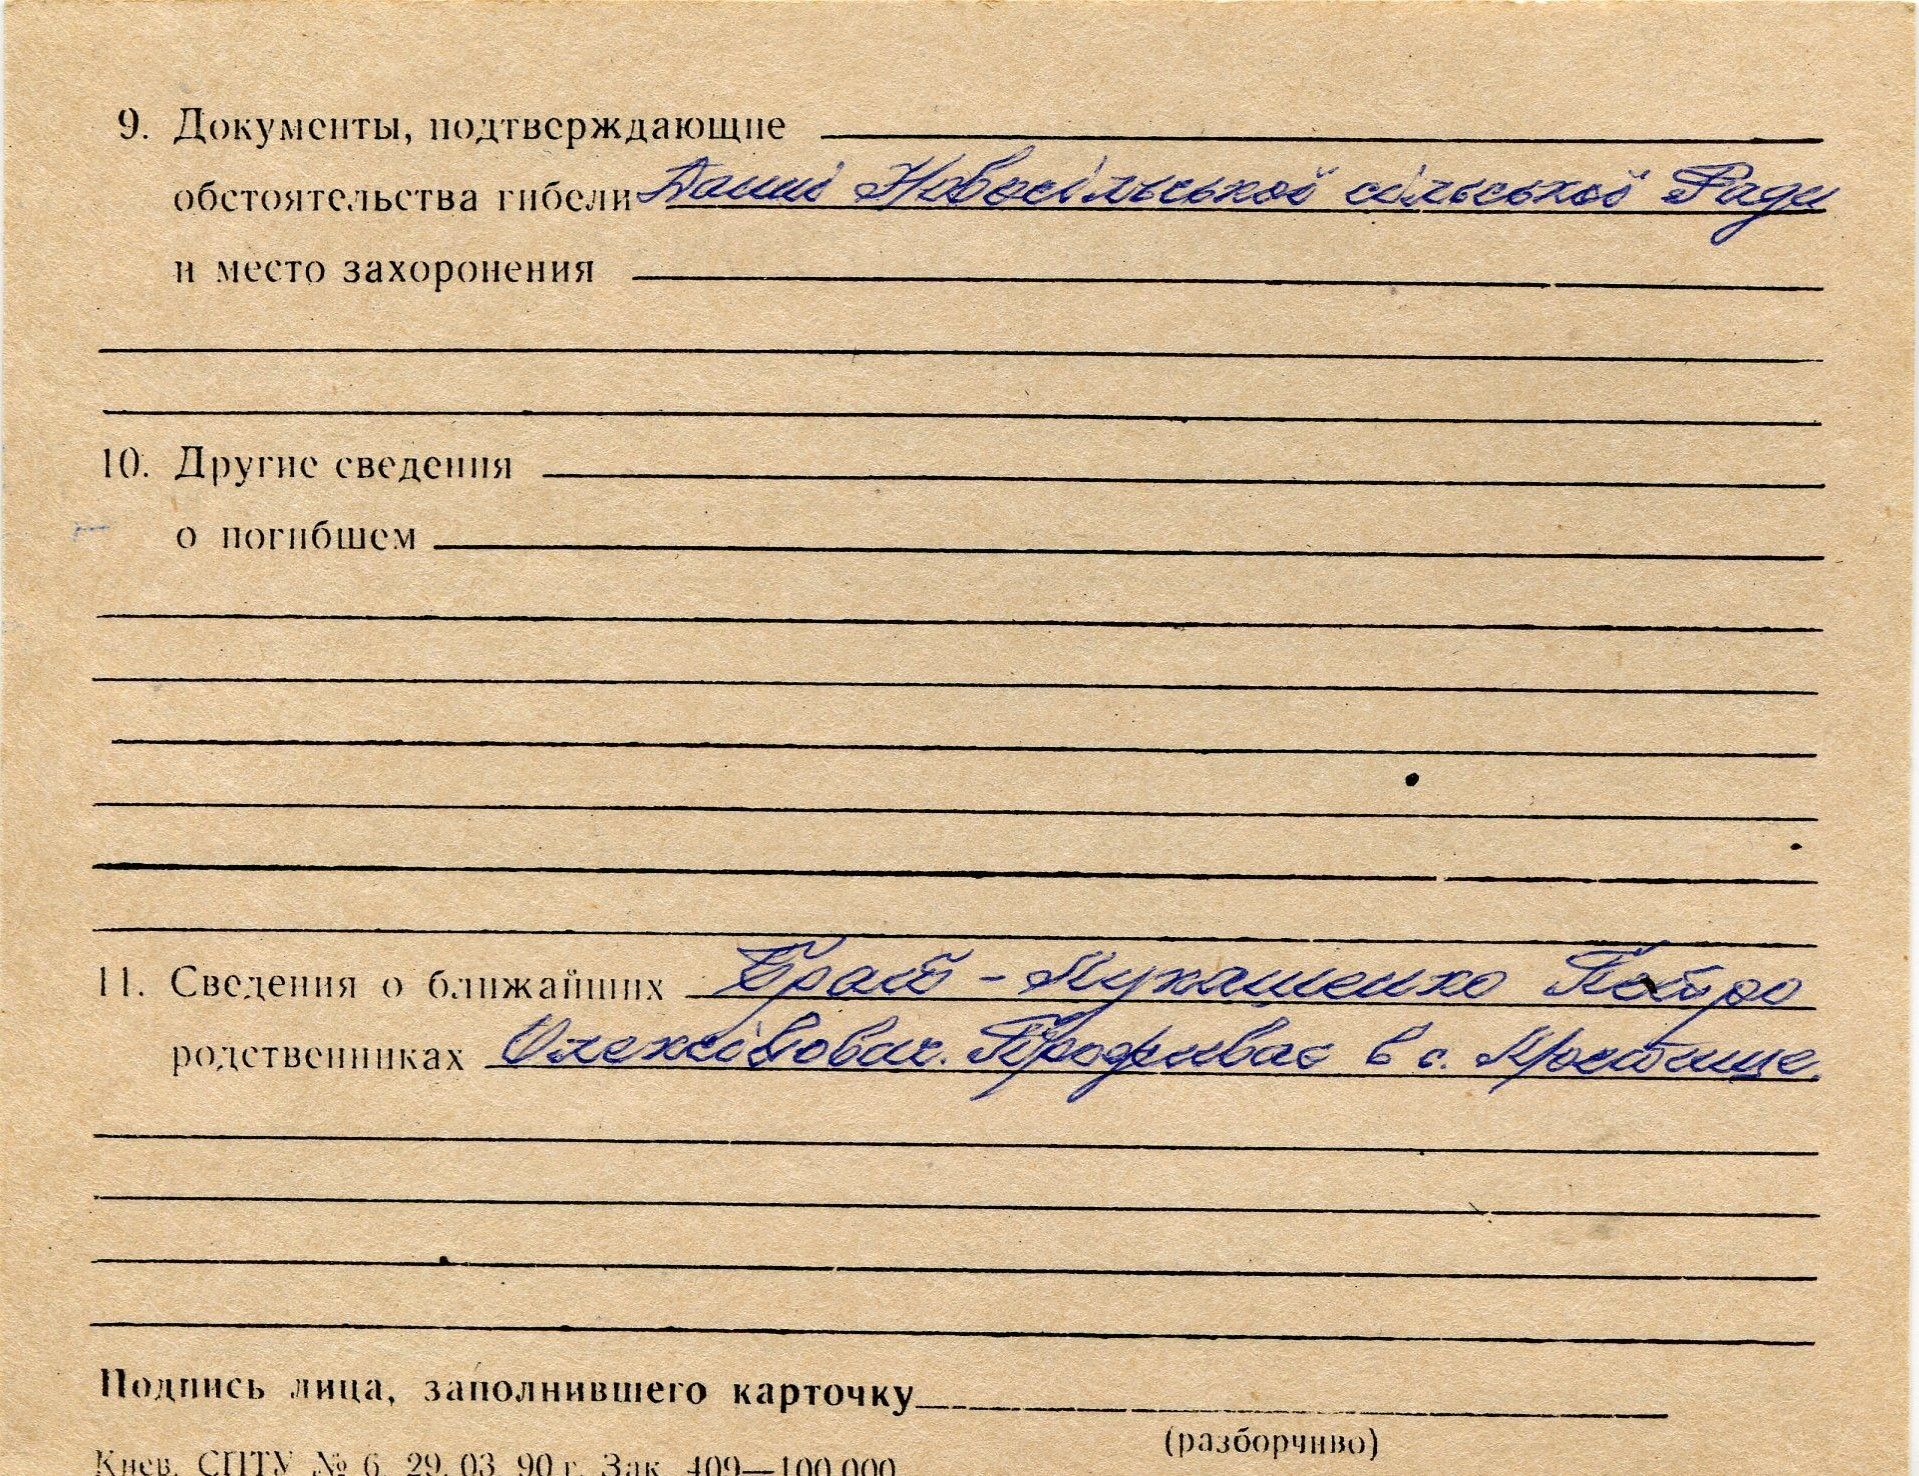 9. Документы, подтверждающие
обстоятельства гибели Данні Новосільської сільської Ради
и место захоронения
10. Другие сведения
о погибшем
11. Сведения о ближайших Брат - Лукашенко Петро
родственниках Олексійович. Проживає в с.
Подпись лица, заполнившего карточку
(разборчиво)
Киев. СПТУ № 6 29. 03 90 г. Зак 409—100 000